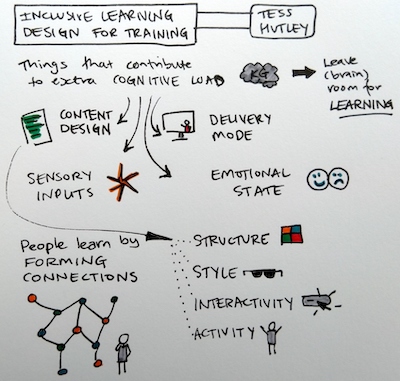 INCLUSIVE LEARNING
DESIGN FOR TRAINING
TESS
HUTLEY
Things that contribute
to extra COGNITIVE LOAD
KG
Leave
(brain)
room for
LEARNING
CONTENT
DESIGN
DELIVERY
MODE
SENSORY
INPUTS
EMOTIONAL
STATE
People learn by
FORMING
CONNECTIONS
STRUCTURE
STYLE
INTERACTIVITY
ACTIVITY